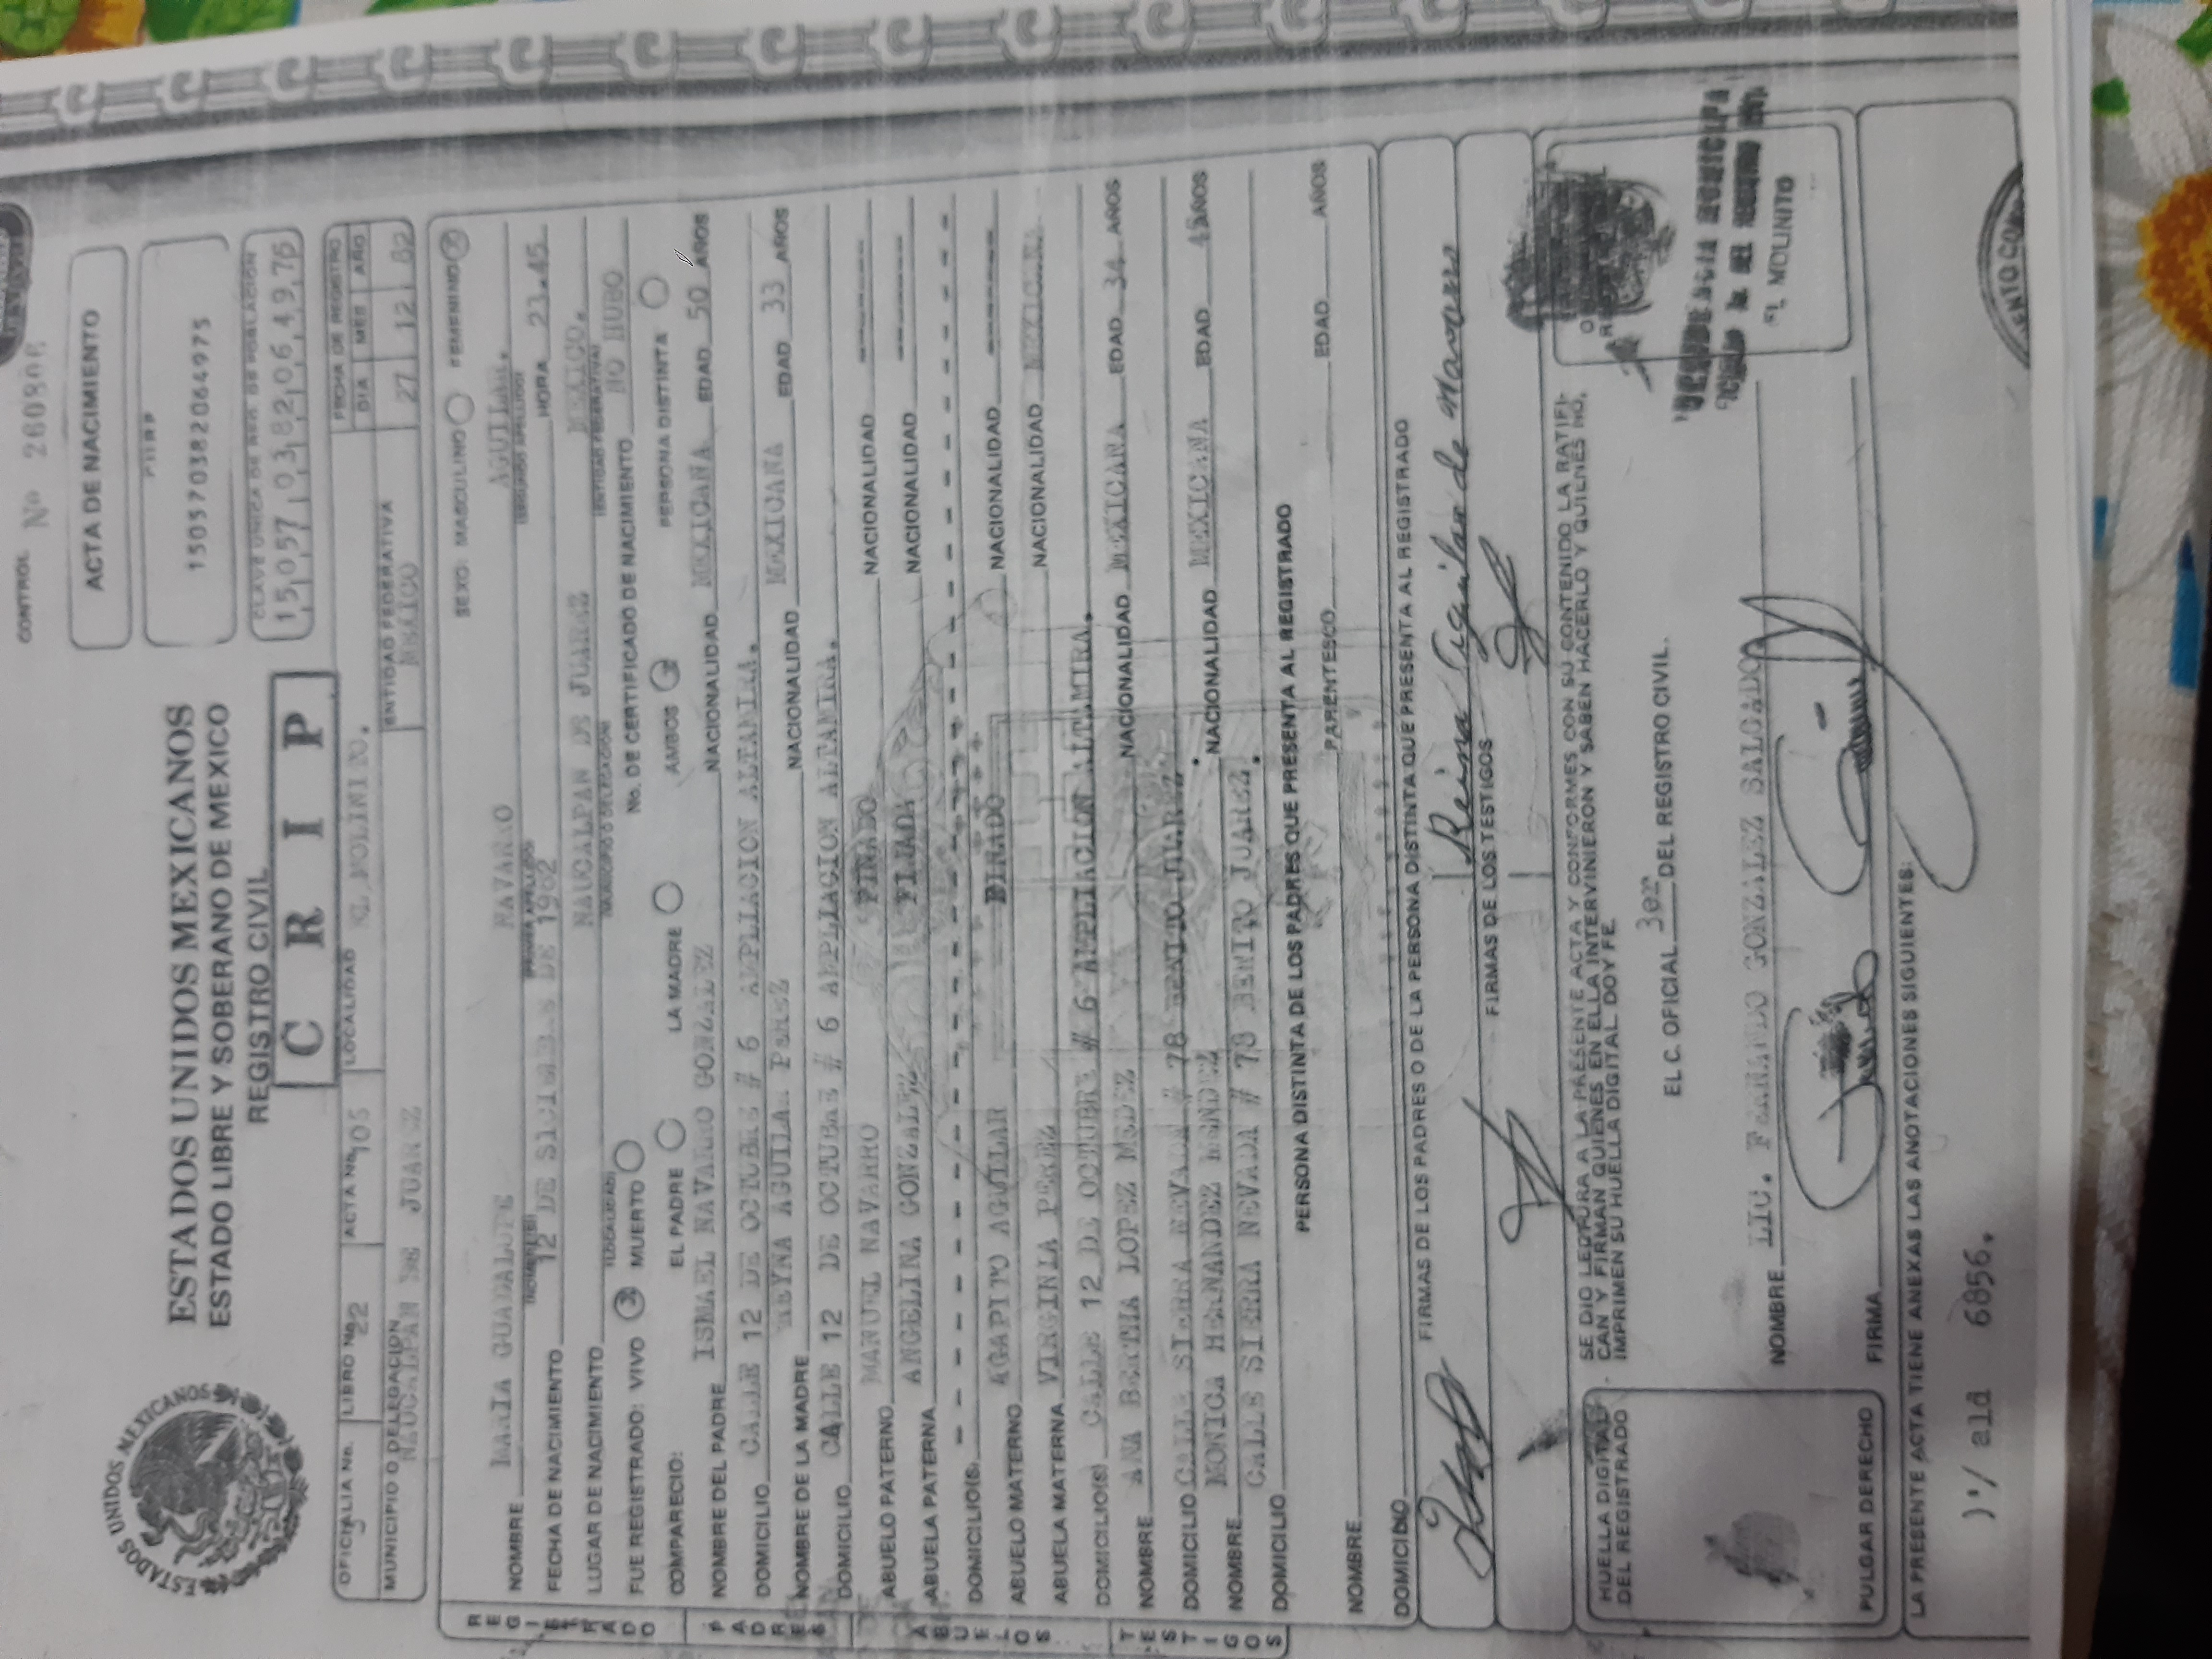 CONTROL Nº 260806
ESTADOS UNIDOS MEXICANOS
ESTADOS UNIDOS MEXICANOS
ESTADO LIBRE Y SOBERANO DE MEXICO
REGISTRO CIVIL
C R I P
ACTA DE NACIMIENTO
150570382064975
CLAVE UNICA DE REG. DE POBLACION
15,057,03,82,06,49,75
OFICIALIA No. 3 LIBRO No. 22 ACTA No. 105 LOCALIDAD EL MOLINITO.
FECHA DE REGISTRO
DIA MES AÑO
MUNICIPIO O DELEGACION NAUCALPAN DE JUAREZ ENTIDAD FEDERATIVA MEXICO 27 12 82
REGISTRADO
SEXO: MASCULINO FEMENINO
NOMBRE MARIA GUADALUPE NAVARRO AGUILAR.
NOMBRE(S) PRIMER APELLIDO SEGUNDO APELLIDO
FECHA DE NACIMIENTO 12 DE DICIEMBRE DE 1982 HORA 23.45
LUGAR DE NACIMIENTO NAUCALPAN DE JUAREZ MEXICO.
LOCALIDAD MUNICIPIO O DELEGACION ENTIDAD FEDERATIVA
FUE REGISTRADO: VIVO MUERTO No. DE CERTIFICADO DE NACIMIENTO NO HUBO
COMPARECIO: EL PADRE LA MADRE AMBOS PERSONA DISTINTA
PADRES
NOMBRE DEL PADRE ISMAEL NAVARRO GONZALEZ NACIONALIDAD MEXICANA EDAD 50 AÑOS
DOMICILIO CALLE 12 DE OCTUBRE # 6 AMPLIACION ALTAMIRA.
NOMBRE DE LA MADRE REYNA AGUILAR PEREZ NACIONALIDAD MEXICANA EDAD 33 AÑOS
DOMICILIO CALLE 12 DE OCTUBRE # 6 AMPLIACION ALTAMIRA.
ABUELOS
ABUELO PATERNO MANUEL NAVARRO FINADO NACIONALIDAD -----
ABUELA PATERNA ANGELINA GONZALEZ FINADA NACIONALIDAD -----
DOMICILIO(S) - - - - - - - - - - - - - - - -
ABUELO MATERNO AGAPITO AGUILAR FINADO NACIONALIDAD -----
ABUELA MATERNA VIRGINIA PEREZ NACIONALIDAD MEXICANA
DOMICILIO(S) CALLE 12 DE OCTUBRE # 6 AMPLIACION ALTAMIRA.
TESTIGOS
NOMBRE ANA BERTHA LOPEZ MEDEZ NACIONALIDAD MEXICANA EDAD 34 AÑOS
DOMICILIO CALLE SIERRA NEVADA # 78 BENITO JUAREZ.
NOMBRE MONICA HERNANDEZ MENDEZ NACIONALIDAD MEXICANA EDAD 45 AÑOS
DOMICILIO CALLE SIERRA NEVADA # 78 BENITO JUAREZ.
PERSONA DISTINTA DE LOS PADRES QUE PRESENTA AL REGISTRADO
NOMBRE PARENTESCO EDAD AÑOS
DOMICILIO
FIRMAS DE LOS PADRES O DE LA PERSONA DISTINTA QUE PRESENTA AL REGISTRADO
Reina Aguilar de Navarro
FIRMAS DE LOS TESTIGOS
SE DIO LECTURA A LA PRESENTE ACTA Y CONFORMES CON SU CONTENIDO LA RATIFI-
CAN Y FIRMAN QUIENES EN ELLA INTERVINIERON Y SABEN HACERLO Y QUIENES NO,
IMPRIMEN SU HUELLA DIGITAL. DOY FE.
HUELLA DIGITAL
DEL REGISTRADO
PULGAR DERECHO
EL C. OFICIAL 3er DEL REGISTRO CIVIL.
NOMBRE LIC. FERNANDO GONZALEZ SALGADO
FIRMA
EL MOLINITO
LA PRESENTE ACTA TIENE ANEXAS LAS ANOTACIONES SIGUIENTES:
ald 6856.